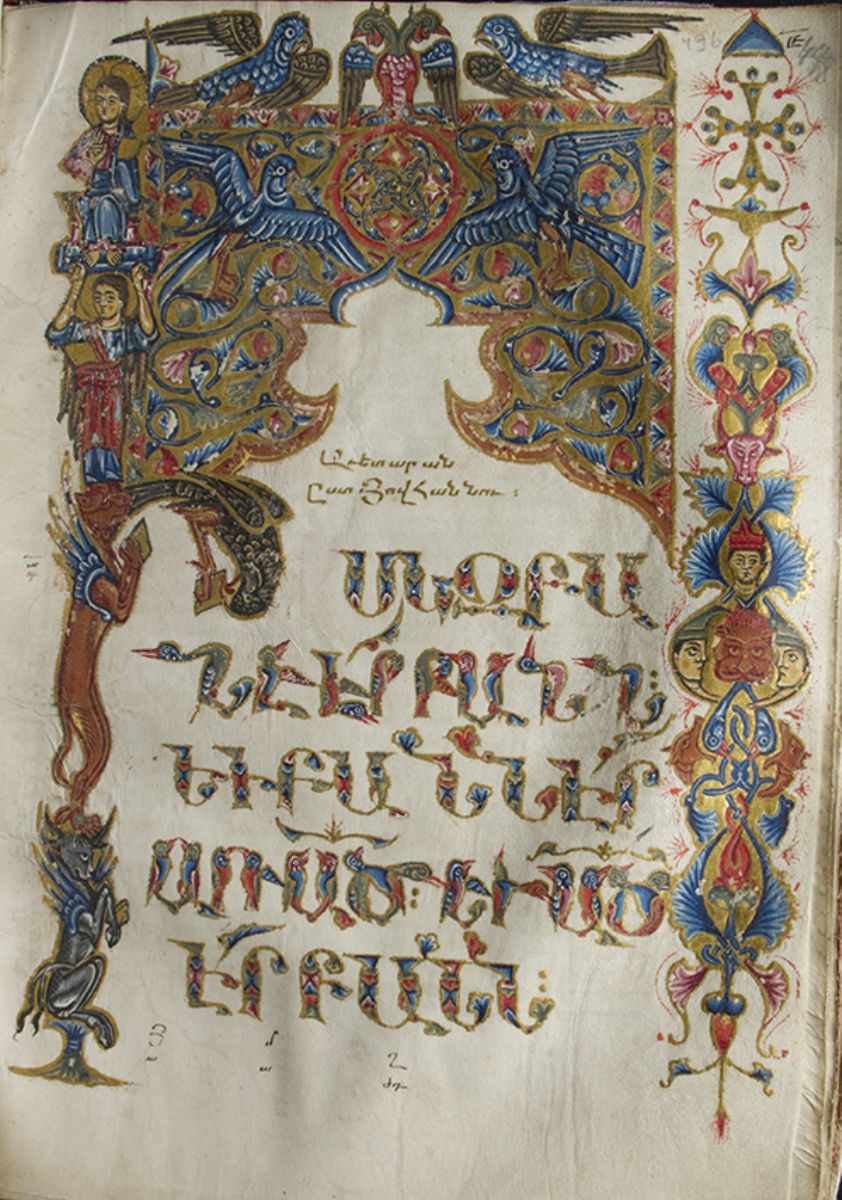 Աւետարան
Ըստ Յովհաննու :
Ի ՍԿԶԲԱ
ՆԷ ԷՐ ԲԱՆՆ:
ԵՒ ԲԱՆՆ ԷՐ
ԱՌ ԱԾ: ԵՒ ԱԾ
ԷՐ ԲԱՆՆ: